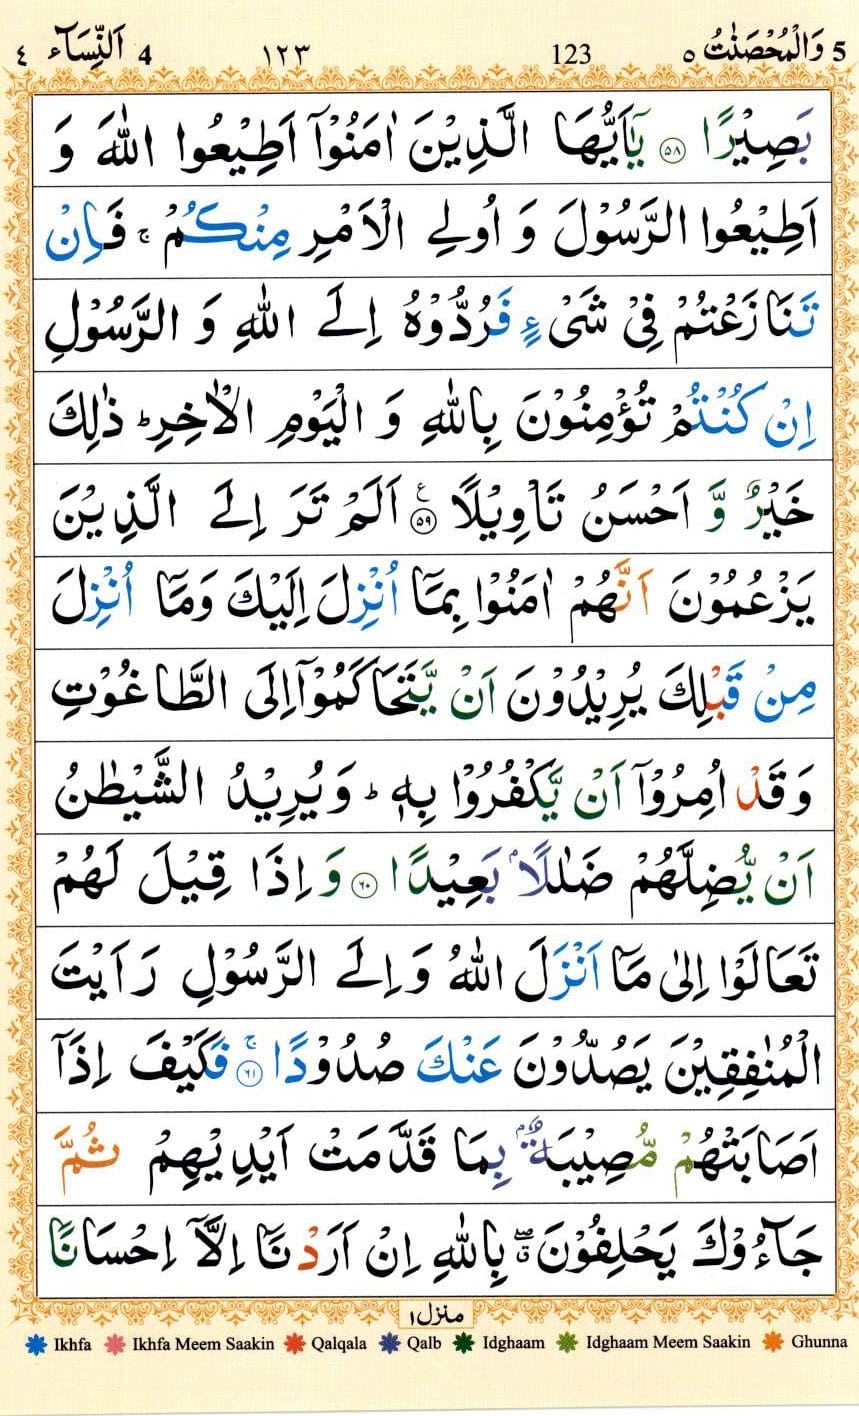 5 وَالْمُحْصَنٰتُ ٥ 123 ١٢٣ 4 اَلنِّسَآء ٤
بَصِيْرًا ۝٥٨ يٰۤاَيُّهَا الَّذِيْنَ اٰمَنُوْۤا اَطِيْعُوا اللّٰهَ وَ
اَطِيْعُوا الرَّسُوْلَ وَ اُولِي الْاَمْرِ مِنْكُمْ ۚ فَاِنْ
تَنَازَعْتُمْ فِيْ شَيْءٍ فَرُدُّوْهُ اِلَى اللّٰهِ وَ الرَّسُوْلِ
اِنْ كُنْتُمْ تُؤْمِنُوْنَ بِاللّٰهِ وَ الْيَوْمِ الْاٰخِرِ ؕ ذٰلِكَ
خَيْرٌ وَّ اَحْسَنُ تَاْوِيْلًا ۝٥٩ ع اَلَمْ تَرَ اِلَى الَّذِيْنَ
يَزْعُمُوْنَ اَنَّهُمْ اٰمَنُوْا بِمَاۤ اُنْزِلَ اِلَيْكَ وَمَاۤ اُنْزِلَ
مِنْ قَبْلِكَ يُرِيْدُوْنَ اَنْ يَّتَحَاكَمُوْۤا اِلَى الطَّاغُوْتِ
وَقَدْ اُمِرُوْۤا اَنْ يَّكْفُرُوْا بِهٖ ؕ وَيُرِيْدُ الشَّيْطٰنُ
اَنْ يُّضِلَّهُمْ ضَلٰلًۢا بَعِيْدًا ۝٦٠ وَاِذَا قِيْلَ لَهُمْ
تَعَالَوْا اِلٰى مَاۤ اَنْزَلَ اللّٰهُ وَاِلَى الرَّسُوْلِ رَاَيْتَ
الْمُنٰفِقِيْنَ يَصُدُّوْنَ عَنْكَ صُدُوْدًا ۝٦١ۚ فَكَيْفَ اِذَاۤ
اَصَابَتْهُمْ مُّصِيْبَةٌۢ بِمَا قَدَّمَتْ اَيْدِيْهِمْ ثُمَّ
جَآءُوْكَ يَحْلِفُوْنَ ۖۗ بِاللّٰهِ اِنْ اَرَدْنَاۤ اِلَّاۤ اِحْسَانًا
منزل ١
Ikhfa Ikhfa Meem Saakin Qalqala Qalb Idghaam Idghaam Meem Saakin Ghunna